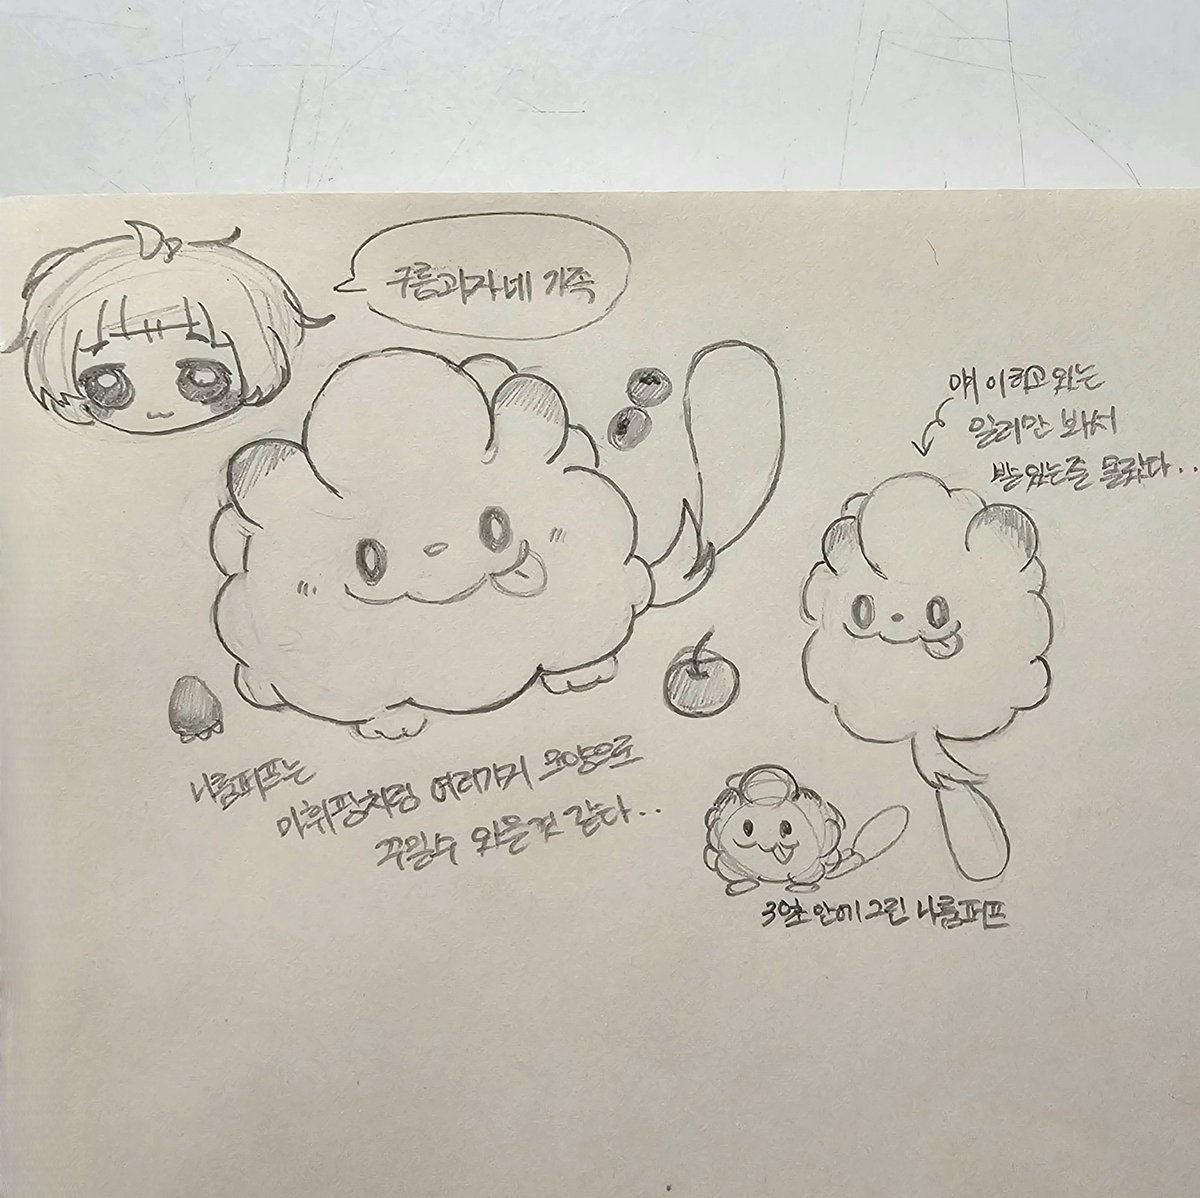 구름과자네 가족
얘 이러고 있는
일러만 봐서
발 있는줄 몰랐다..
나룸퍼프는
마휘핑처럼 여러가지 모양으로
꾸밀수 있을것 같다..
3초안에 그린 나룸퍼프